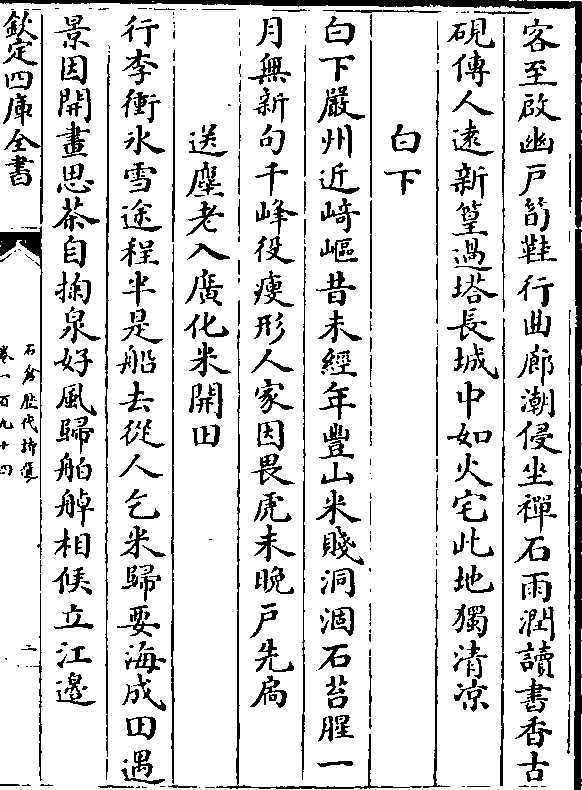 客至啟幽戶筍鞋行曲廊潮侵坐禪石雨潤讀書香古
硯傳人遠新篁過塔長城中如火宅此地獨清凉
白下
白下嚴州近﨑嶇昔未經年豐山米賤洞涸石苔腥一
月無新句千峰役瘦形人家因畏虎未晚戶先扃
送塵老入廣化米開田
行李衝氷雪途程半是船去從人乞米歸要海成田遇
景因開畫思茶自掬泉好風歸舶䑲相候立江邊
欽定四庫全書
石倉歷代詩選
卷一百九十四
二